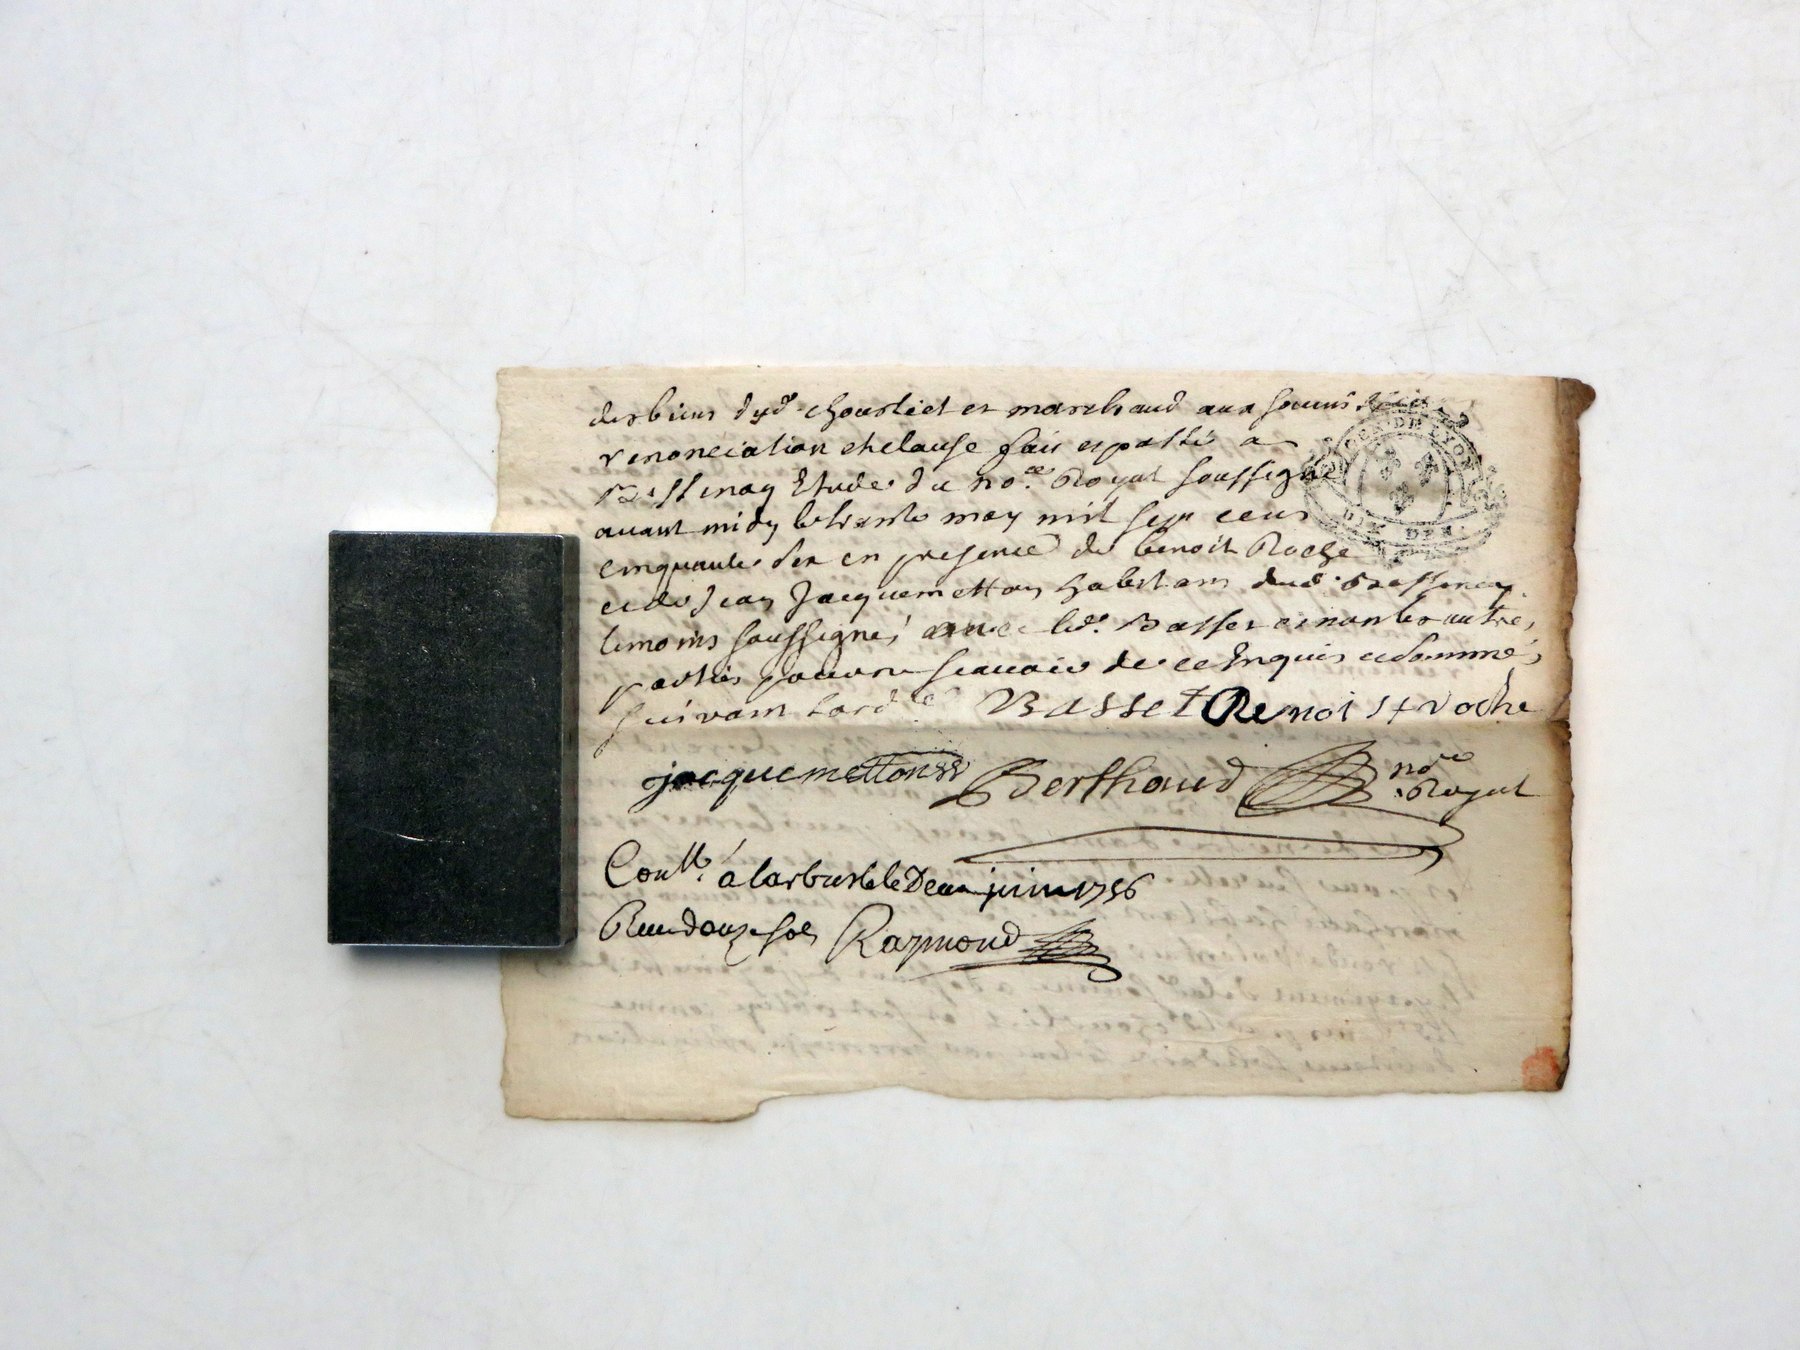 des biens dud. chourliet et marchand aux soumis.
renonciation et clause fait et passé a
Bessenay Etude du no.re Royal soussigné
avant midy le trante may mil sept cens
cinquante six en presence de benoit Roche
et de Jean Jacquemetton habitans dud. Bessenay
temoins soussignés avec led. Basset et non les autres
parties pour ne scavoir de ce Enquis et sommés
suivant lord.ce Basset Benoist roche
jacquemetton Berthaud no.re Royal
Con.llé a larbresle le Deux juin 1756
Reçu douze sols Raymond
GEN. DE LYON
DIX DEN.